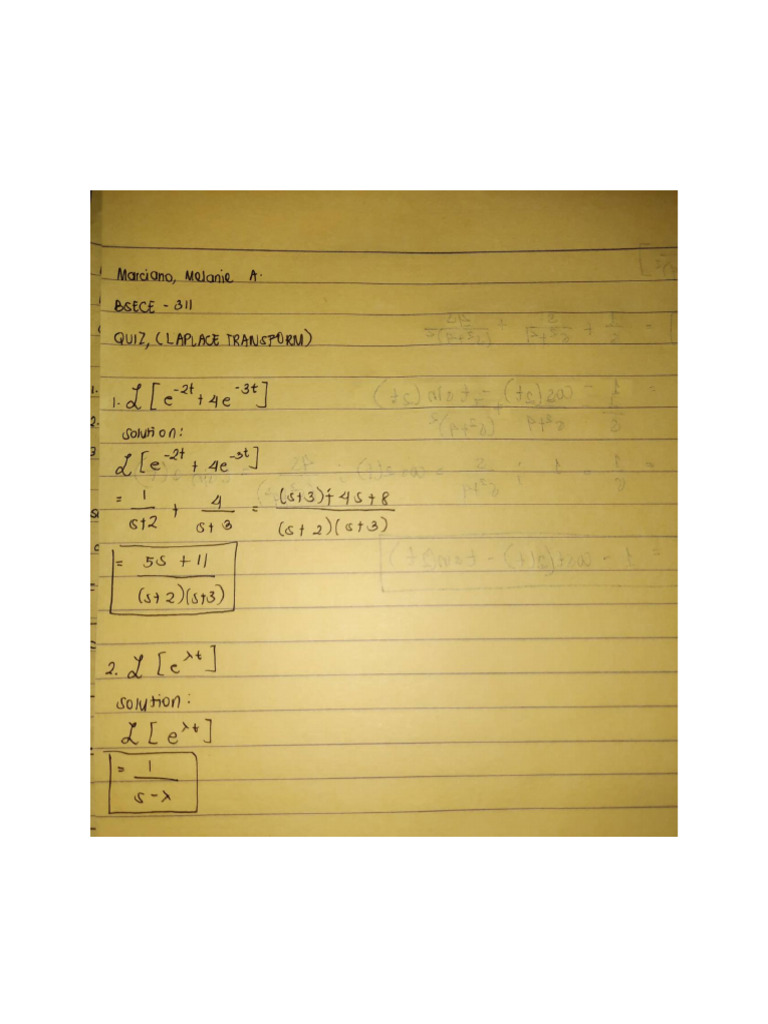 Marciano, Melanie A.
BSECE - 311
QUIZ, (LAPLACE TRANSFORM)
1. ℒ[e^{-2t} + 4e^{-3t}]
solution:
ℒ[e^{-2t} + 4e^{-3t}]
= 1/(s+2) + 4/(s+3) = ((s+3) + 4s + 8)/((s+2)(s+3))
= (5s + 11)/((s+2)(s+3))
2. ℒ[e^{λt}]
solution:
ℒ[e^{λt}]
= 1/(s-λ)